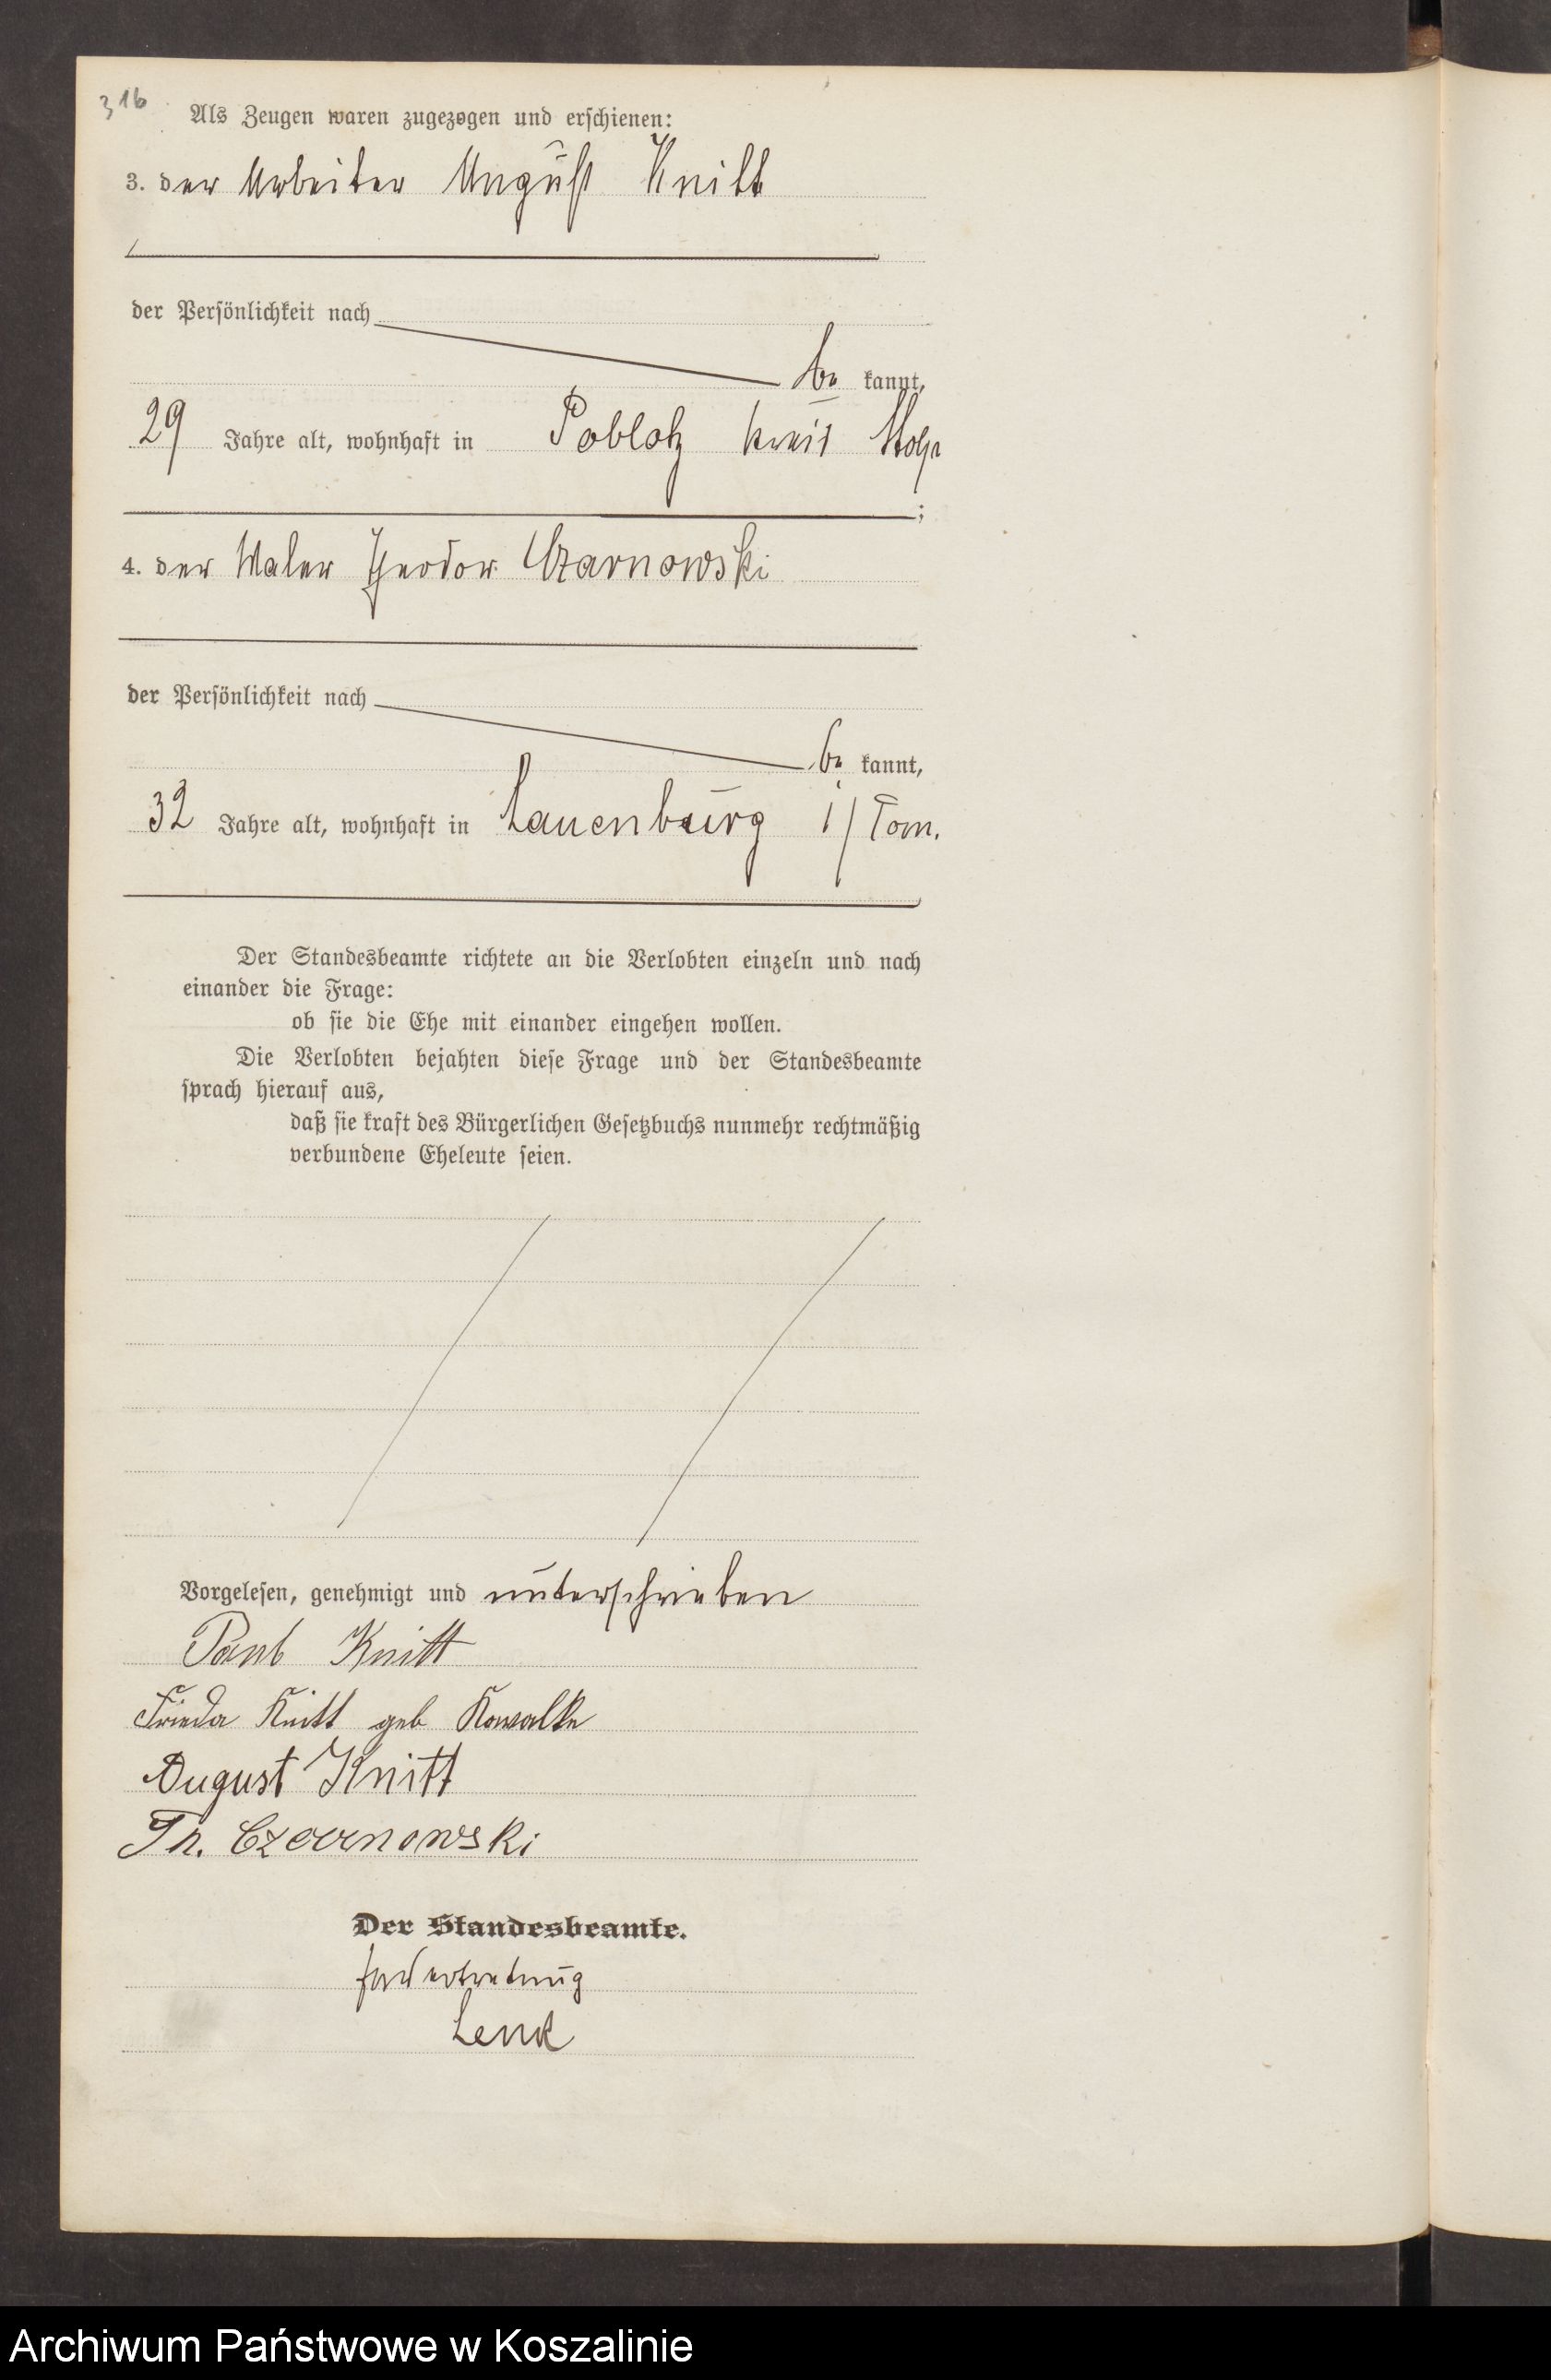 316
Als Zeugen waren zugezogen und erschienen:
3. der Arbeiter August Knitt
der Persönlichkeit nach
be kannt,
29 Jahre alt, wohnhaft in Poblotz Kreis Stolp
;
4. der Maler Theodor Czarnowski
der Persönlichkeit nach
be kannt,
32 Jahre alt, wohnhaft in Lauenburg i/Pom.
Der Standesbeamte richtete an die Verlobten einzeln und nach
einander die Frage:
ob sie die Ehe mit einander eingehen wollen.
Die Verlobten bejahten diese Frage und der Standesbeamte
sprach hierauf aus,
daß sie kraft des Bürgerlichen Gesetzbuchs nunmehr rechtmäßig
verbundene Eheleute seien.
Vorgelesen, genehmigt und unterschrieben
Paul Knitt
Frieda Knitt geb Kowalke
August Knitt
Th. Czarnowski
Der Standesbeamte.
Lenk
Archiwum Państwowe w Koszalinie